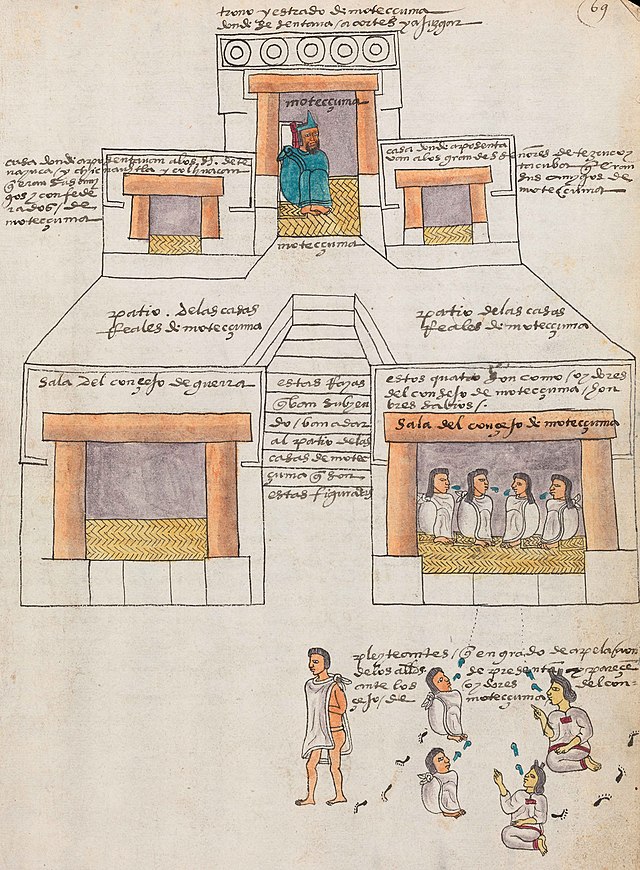 69
trono y estrado de moteccuma
donde se sentaua / a cortes y a juzgar
moteccuma
casa donde aposentauan a los s^s. de te
nayuca / y chicnauhtla y colhuacan
q̄ eran sus ami
gos / y confede
rados / de
moteccuma
casa donde aposenta
uan a los grandes se
ñores de tezcuco y
tacuba q̄ eran
sus amigos de
moteccuma
moteccuma
patio . de las casas
Reales de moteccuma
patio de las casas
Reales de moteccuma
Sala del conçejo de guerra
estas Rayas
q̄ ban subyen
do / ban a dar
al patio de las
casas de motec
cuma q̄ son
estas figuradas
estos quatro son como / oydores
del consejo de moteccuma / hon
bres sabios /.
Sala del conçejo de moteccuma
pleyteantes / q̄ en grado de apelaçion
de los alldes de presentan y pareçe
ante los oydores del con
sejo / de moteccuma